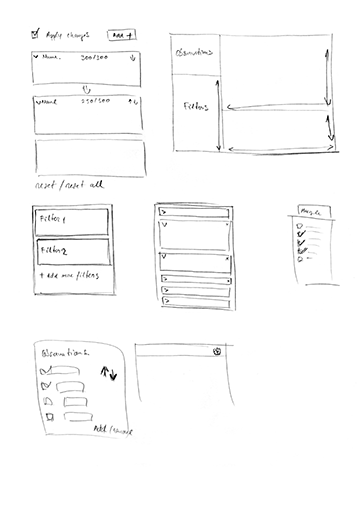 Apply changes Add +
Name 300/500
Name 250/300
reset / reset all
Observations
Filters
Filter 1
Filter 2
+ Add new filters
Observations
Add /